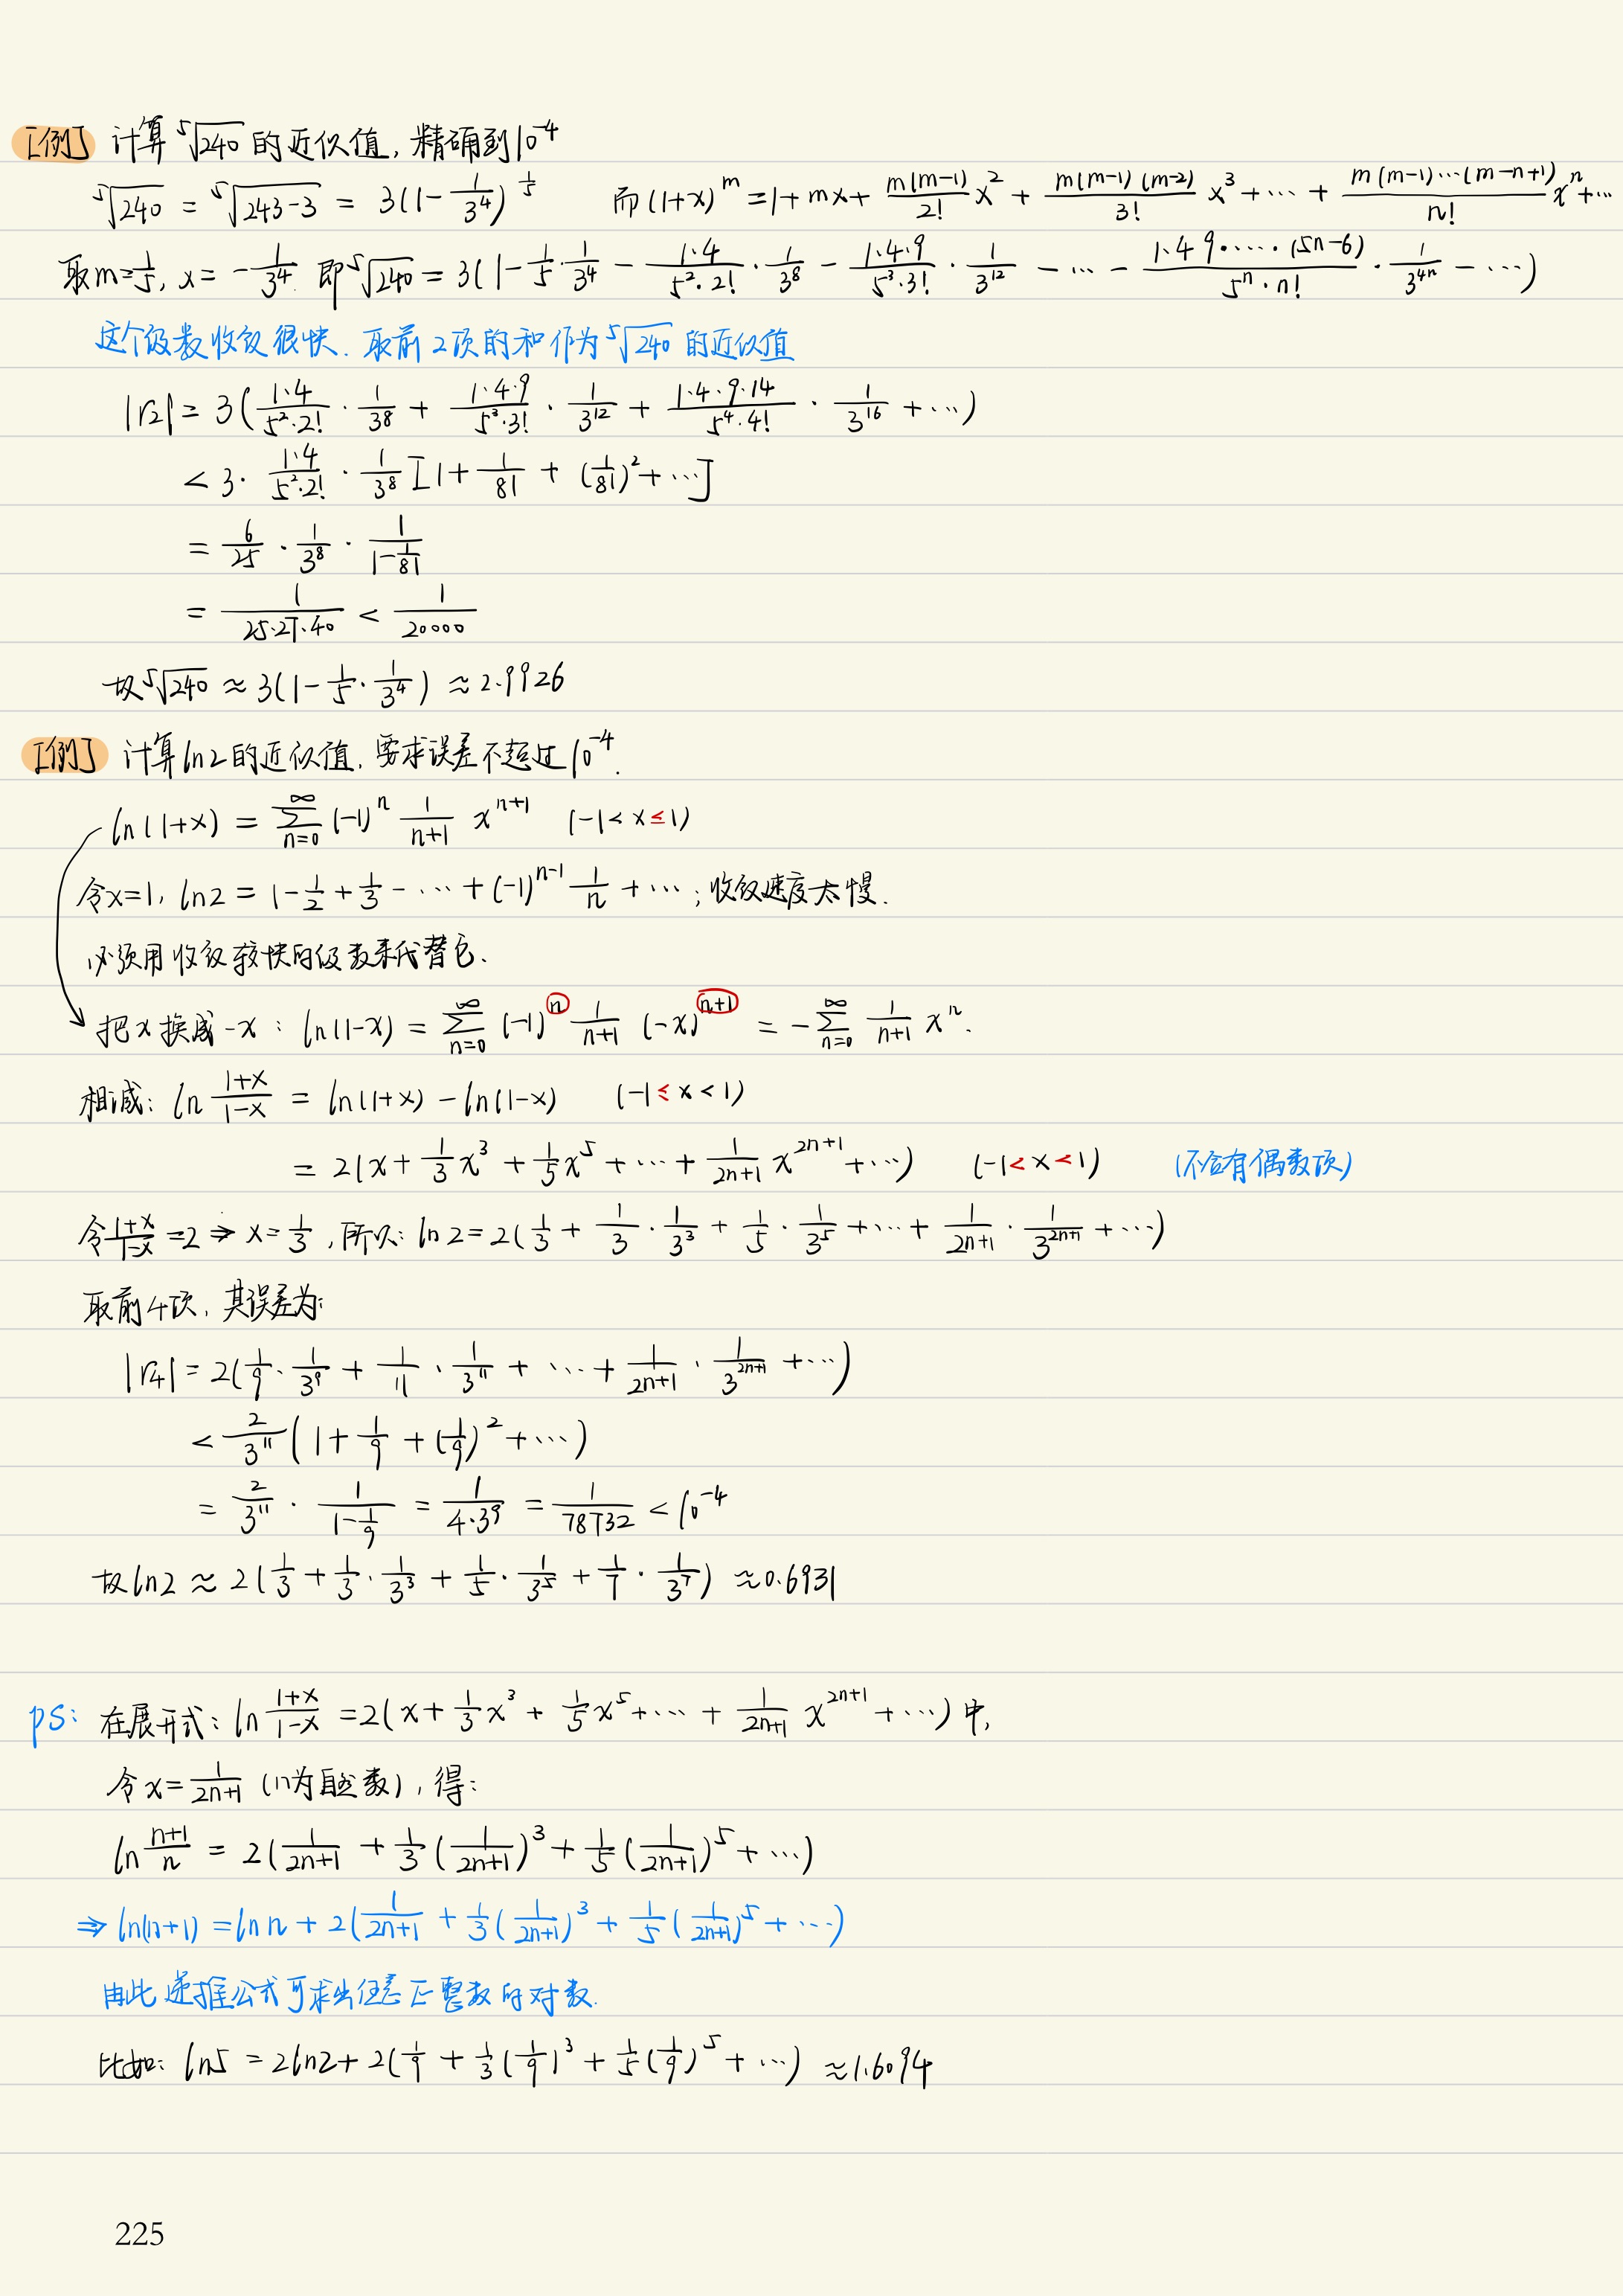 [例] 计算 ⁵√240 的近似值, 精确到10⁻⁴
⁵√240 = ⁵√(243-3) = 3(1-1/3⁴)^(1/5) 而 (1+x)^m = 1+mx+ m(m-1)/2! x² + m(m-1)(m-2)/3! x³ + ⋯ + m(m-1)⋯(m-n+1)/n! xⁿ + ⋯
取m=1/5, x = -1/3⁴. 即 ⁵√240 = 3(1 - 1/5·1/3⁴ - 1·4/(5²·2!)·1/3⁸ - 1·4·9/(5³·3!)·1/3¹² - ⋯ - 1·4·9·⋯·(5n-6)/(5ⁿ·n!)·1/3⁴ⁿ - ⋯)
这个级数收敛很快. 取前2项的和作为 ⁵√240 的近似值
|r₂| = 3(1·4/(5²·2!)·1/3⁸ + 1·4·9/(5³·3!)·1/3¹² + 1·4·9·14/(5⁴·4!)·1/3¹⁶ + ⋯)
< 3·1·4/(5²·2!)·1/3⁸[1 + 1/81 + (1/81)² + ⋯]
= 6/25·1/3⁸·1/(1-1/81)
= 1/(25·27·40) < 1/20000
故 ⁵√240 ≈ 3(1-1/5·1/3⁴) ≈ 2.9926
[例] 计算ln2的近似值, 要求误差不超过10⁻⁴.
ln(1+x) = ∑_{n=0}^{∞} (-1)ⁿ 1/(n+1) x^(n+1) (-1<x≤1)
令x=1, ln2 = 1-1/2+1/3-⋯+(-1)^(n-1) 1/n + ⋯; 收敛速度太慢.
必须用收敛较快的级数来代替它.
把x换成-x: ln(1-x) = ∑_{n=0}^{∞} (-1)ⁿ 1/(n+1) (-x)^(n+1) = -∑_{n=0}^{∞} 1/(n+1) xⁿ.
相减: ln (1+x)/(1-x) = ln(1+x) - ln(1-x) (-1≤x<1)
= 2(x + 1/3 x³ + 1/5 x⁵ + ⋯ + 1/(2n+1) x^(2n+1) + ⋯) (-1<x<1) (不含有偶数项)
令 (1+x)/(1-x) = 2 ⇒ x = 1/3, 所以: ln2 = 2(1/3 + 1/3·1/3³ + 1/5·1/3⁵ + ⋯ + 1/(2n+1)·1/3^(2n+1) + ⋯)
取前4项, 其误差为:
|r₄| = 2(1/9·1/3⁹ + 1/11·1/3¹¹ + ⋯ + 1/(2n+1)·1/3^(2n+1) + ⋯)
< 2/3¹¹(1 + 1/9 + (1/9)² + ⋯)
= 2/3¹¹·1/(1-1/9) = 1/(4·3⁹) = 1/78732 < 10⁻⁴
故ln2 ≈ 2(1/3 + 1/3·1/3³ + 1/5·1/3⁵ + 1/7·1/3⁷) ≈ 0.6931
ps: 在展开式: ln (1+x)/(1-x) = 2(x + 1/3 x³ + 1/5 x⁵ + ⋯ + 1/(2n+1) x^(2n+1) + ⋯) 中,
令 x = 1/(2n+1) (n为自然数), 得:
ln (n+1)/n = 2(1/(2n+1) + 1/3(1/(2n+1))³ + 1/5(1/(2n+1))⁵ + ⋯)
⇒ ln(n+1) = ln n + 2(1/(2n+1) + 1/3(1/(2n+1))³ + 1/5(1/(2n+1))⁵ + ⋯)
由此递推公式可求出任意正整数的对数.
比如: ln5 = 2ln2 + 2(1/9 + 1/3(1/9)³ + 1/5(1/9)⁵ + ⋯) ≈ 1.6094
225